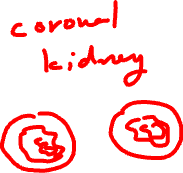 coronal
kidney